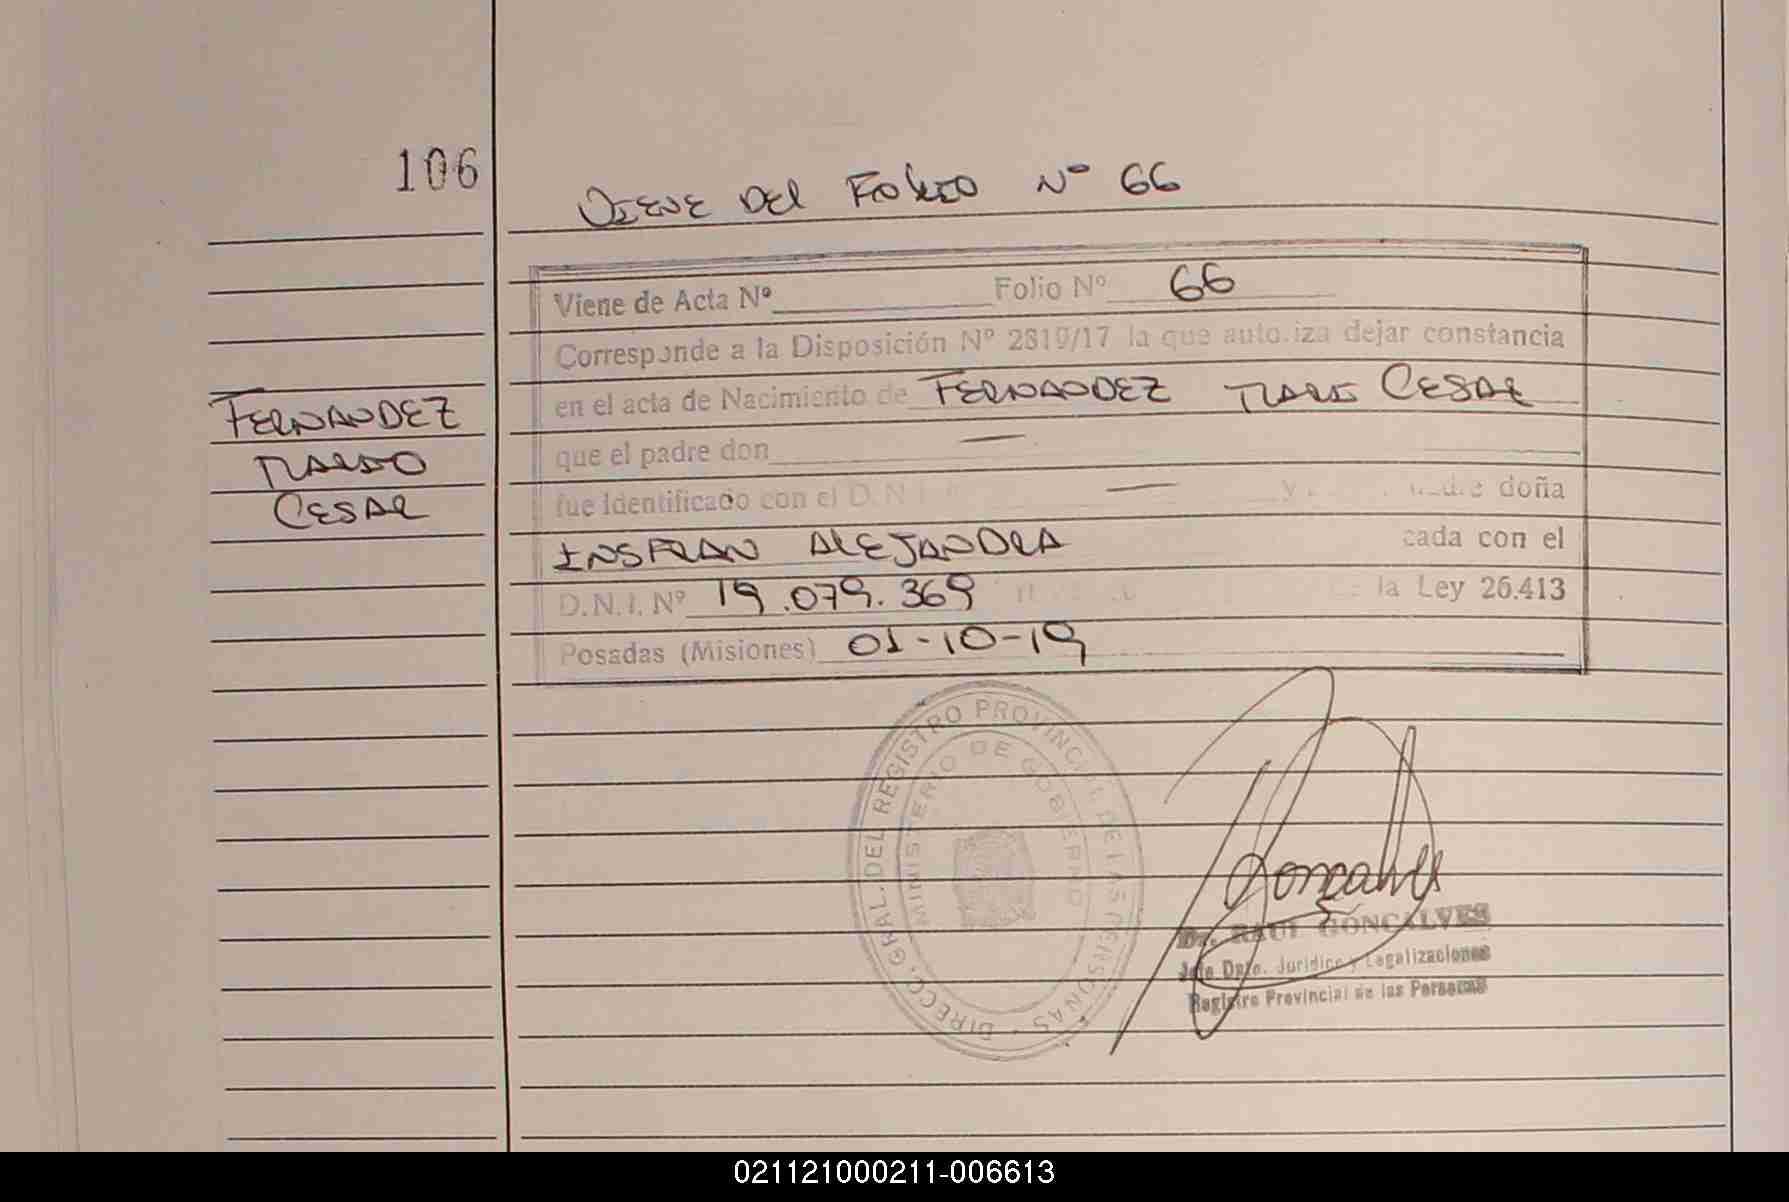 106
VIENE DEL FOLIO Nº 66
Viene de Acta Nº Folio Nº 66
Corresponde a la Disposición Nº 2819/17 la que autoriza dejar constancia
en el acta de Nacimiento de FERNANDEZ CESAR
que el padre don —
fue Identificado con el D.N.I. — y doña
INSFRAN ALEJANDRA cada con el
D.N.I. Nº 19.079.369 la Ley 26.413
Posadas (Misiones) 01-10-19
FERNANDEZ
MARIO
CESAR
DIRECC. GRAL. DEL REGISTRO PROVINCIAL DE LAS PERSONAS
MINISTERIO DE GOBIERNO
Goncalves
Dr. RAUL GONCALVES
Jefe Dpto. Jurídico y Legalizaciones
Registro Provincial de las Personas
021121000211-006613